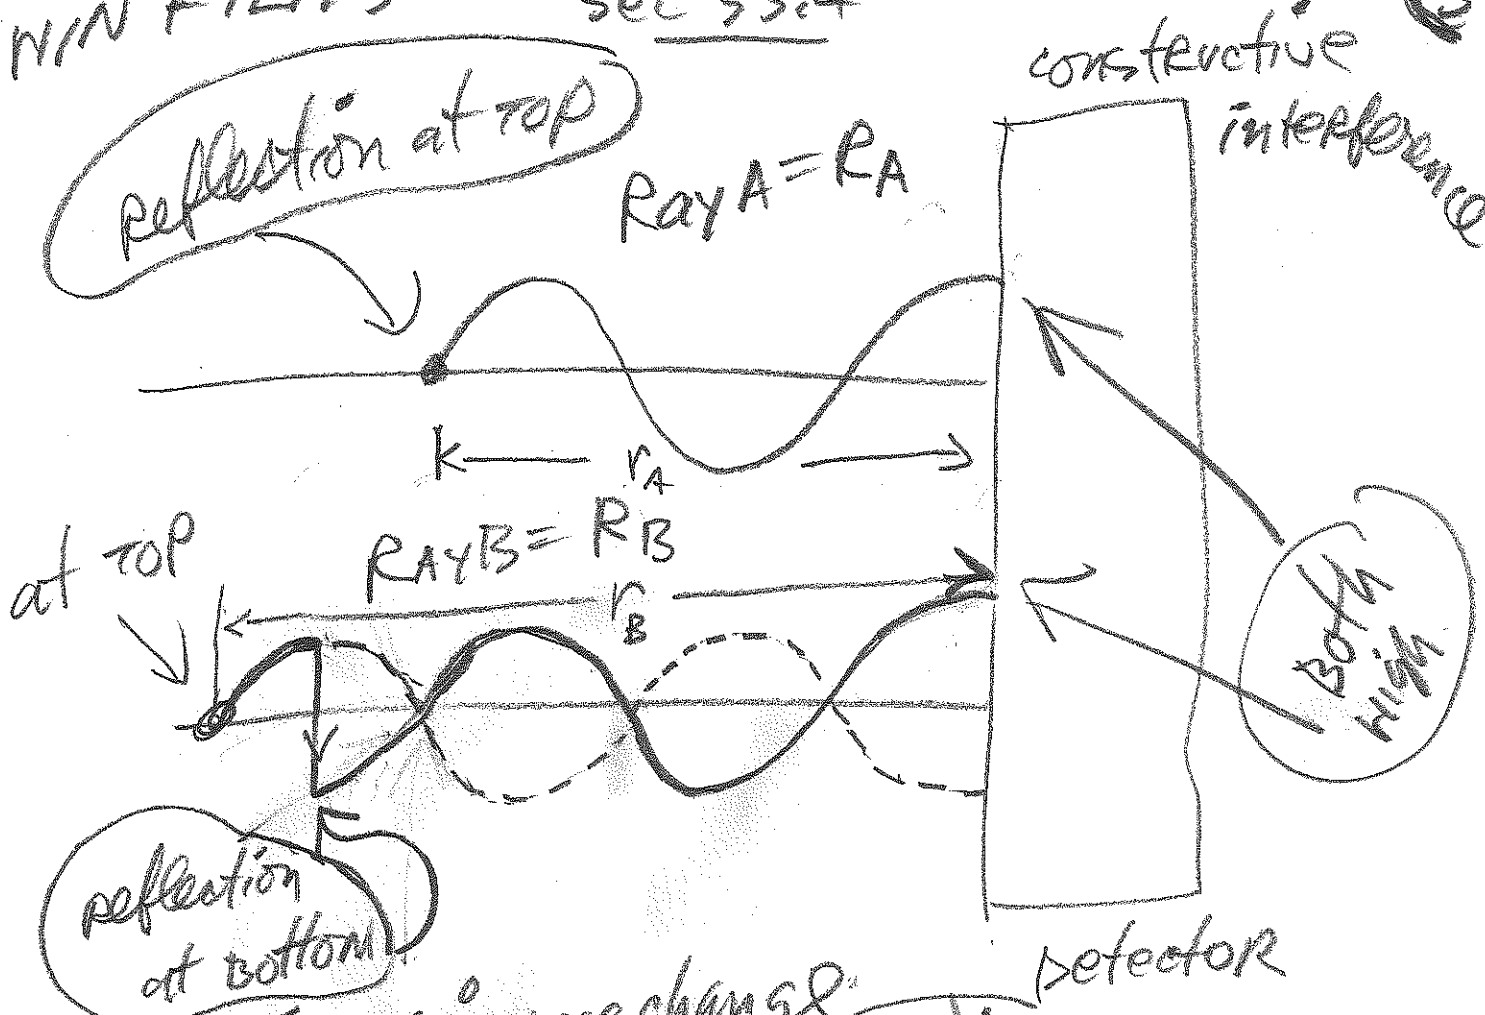 constructive
interference
Reflection at TOP
Ray A = RA
rA
at TOP
RAyB = RB
rB
Both
High
Reflection
at Bottom
Detector
change